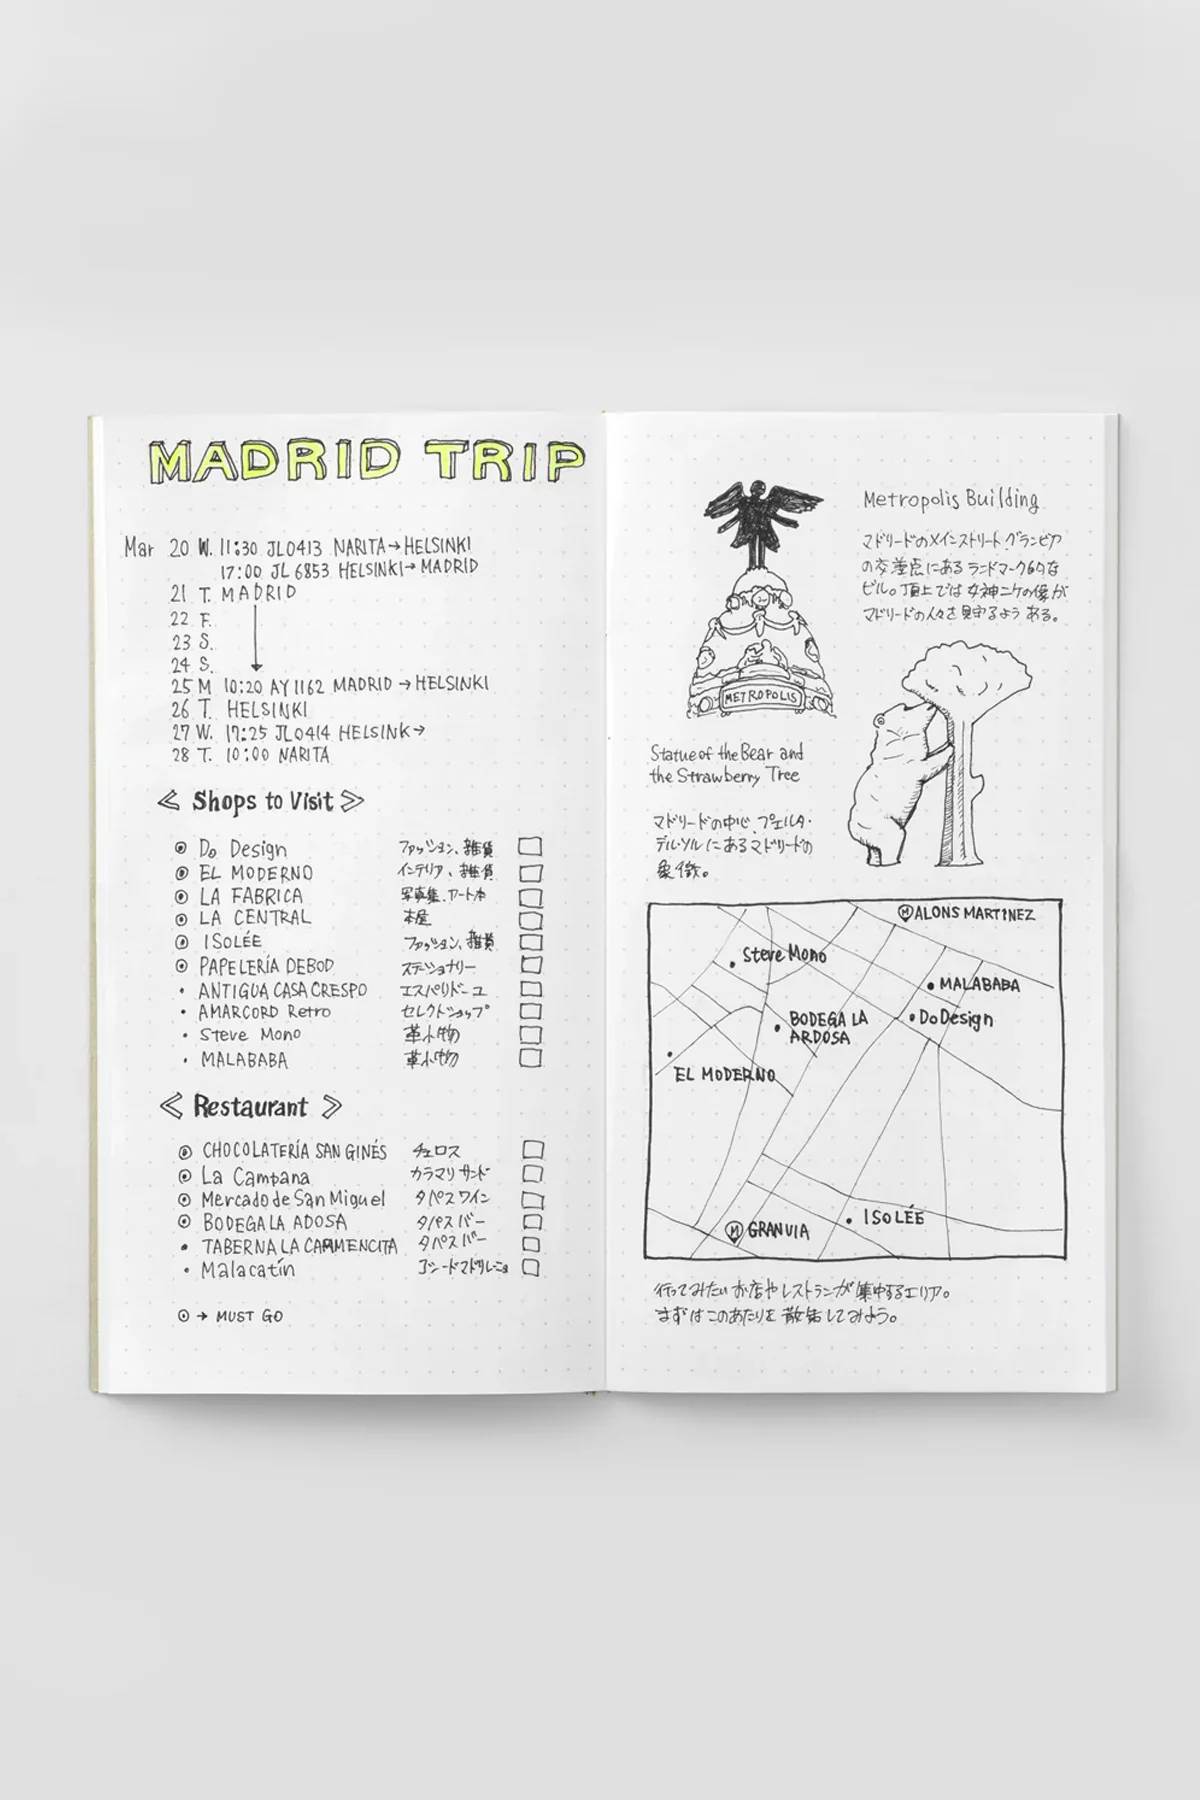 MADRID TRIP
Mar 20 W. 11:30 JL0413 NARITA→HELSINKI
17:00 JL 6853 HELSINKI→MADRID
21 T. MADRID
22 F.
23 S.
24 S.
25 M 10:20 AY1162 MADRID →HELSINKI
26 T. HELSINKI
27 W. 17:25 JL0414 HELSINK→
28 T. 10:00 NARITA
≪ Shops to Visit ≫
◉ Do Design ファッション、雑貨
◉ EL MODERNO インテリア、雑貨
◉ LA FABRICA 写真集、アート本
◉ LA CENTRAL 本屋
◉ ISOLÉE ファッション、雑貨
◉ PAPELERÍA DEBOD ステーショナリー
• ANTIGUA CASA CRESPO エスパドリーユ
• AMARCORD Retro セレクトショップ
• Steve Mono 革小物
• MALABABA 革小物
≪ Restaurant ≫
◉ CHOCOLATERÍA SAN GINÉS チュロス
◉ La Campana カラマリサンド
◉ Mercado de San Miguel タパスワイン
◉ BODEGA LA ADOSA タパスバー
• TABERNA LA CARMENCITA タパスバー
• Malacatín コシードマドリレーニョ
◉ → MUST GO
Metropolis Building
マドリードのメインストリート、グランビア
の交差点にあるランドマーク的な
ビル。頂上では女神ニケの像が
マドリードの人々を見守るようある。
METROPOLIS
Statue of the Bear and
the Strawberry Tree
マドリードの中心、プエルタ・
デル・ソルにあるマドリードの
象徴。
Ⓜ ALONS MARTINEZ
Steve Mono
MALABABA
BODEGA LA
ARDOSA
Do Design
EL MODERNO
Ⓜ GRANVIA
ISOLÉE
行ってみたいお店やレストランが集中するエリア。
まずはこのあたりを散策してみよう。